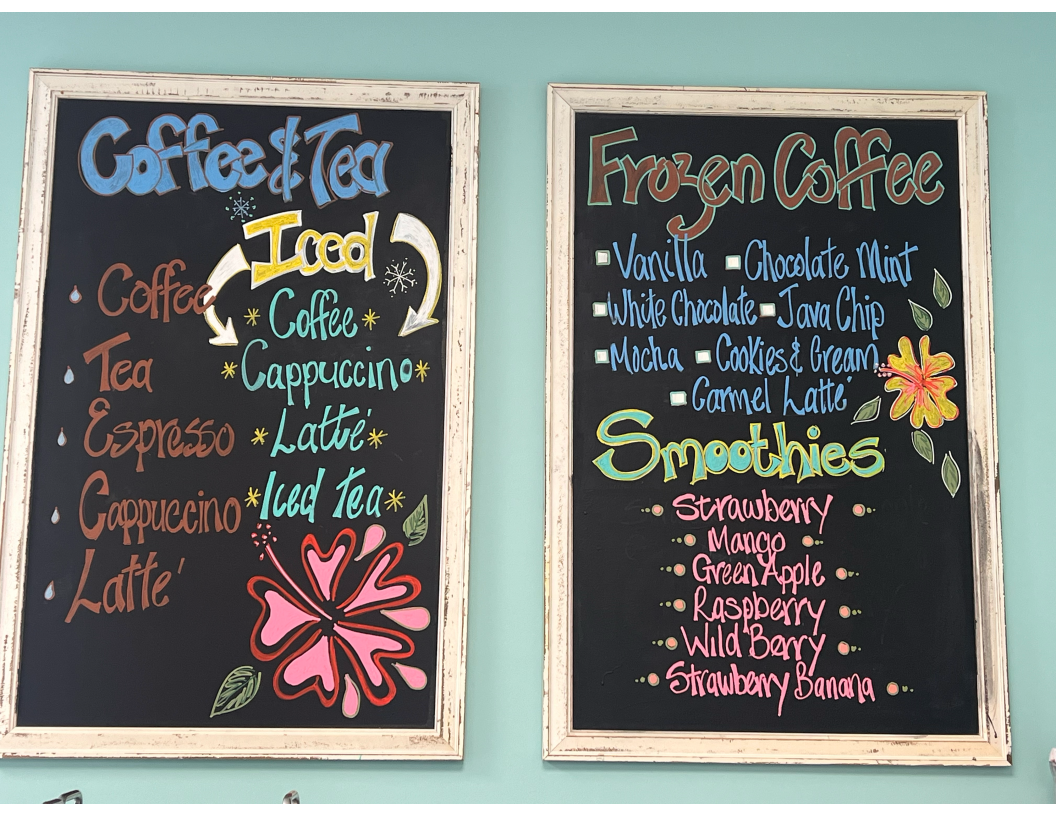 Coffee & Tea
Coffee
Tea
Espresso
Cappuccino
Latte'
Iced
Coffee
Cappuccino
Latte'
Iced tea
Frozen Coffee
Vanilla Chocolate Mint
White Chocolate Java Chip
Mocha Cookies & Cream
Carmel Latte'
Smoothies
Strawberry
Mango
Green Apple
Raspberry
Wild Berry
Strawberry Banana